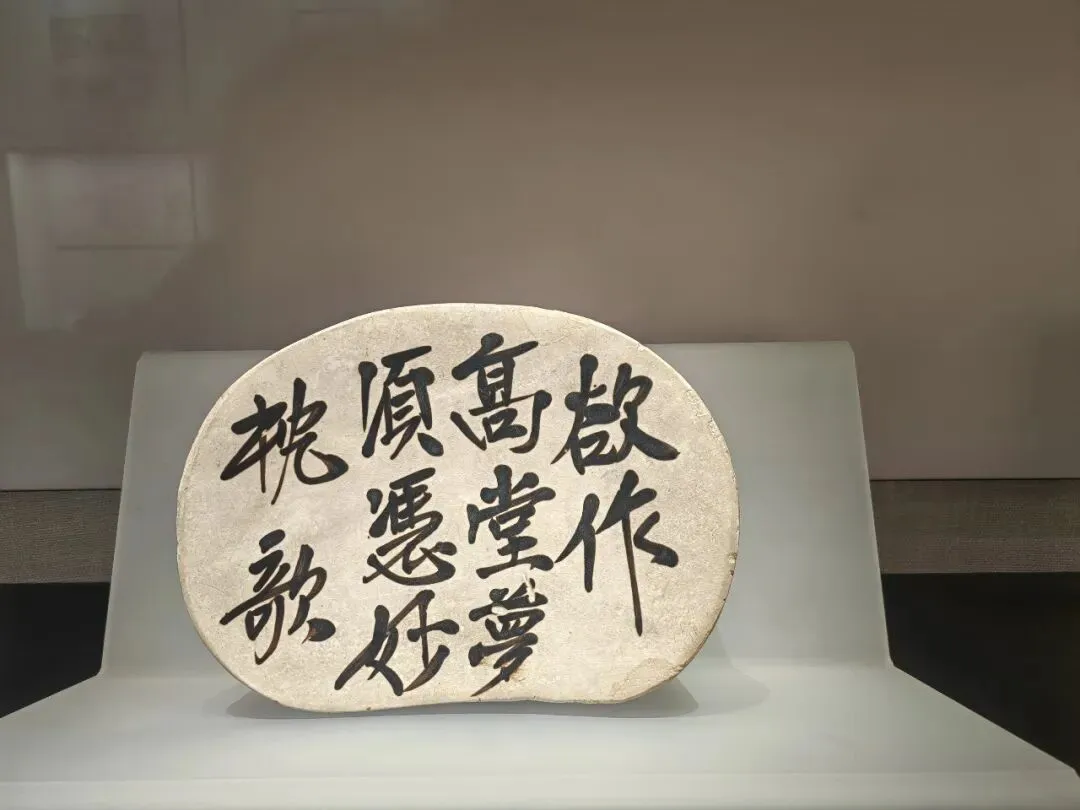 欲作
髙堂夢
須憑妙
枕欹